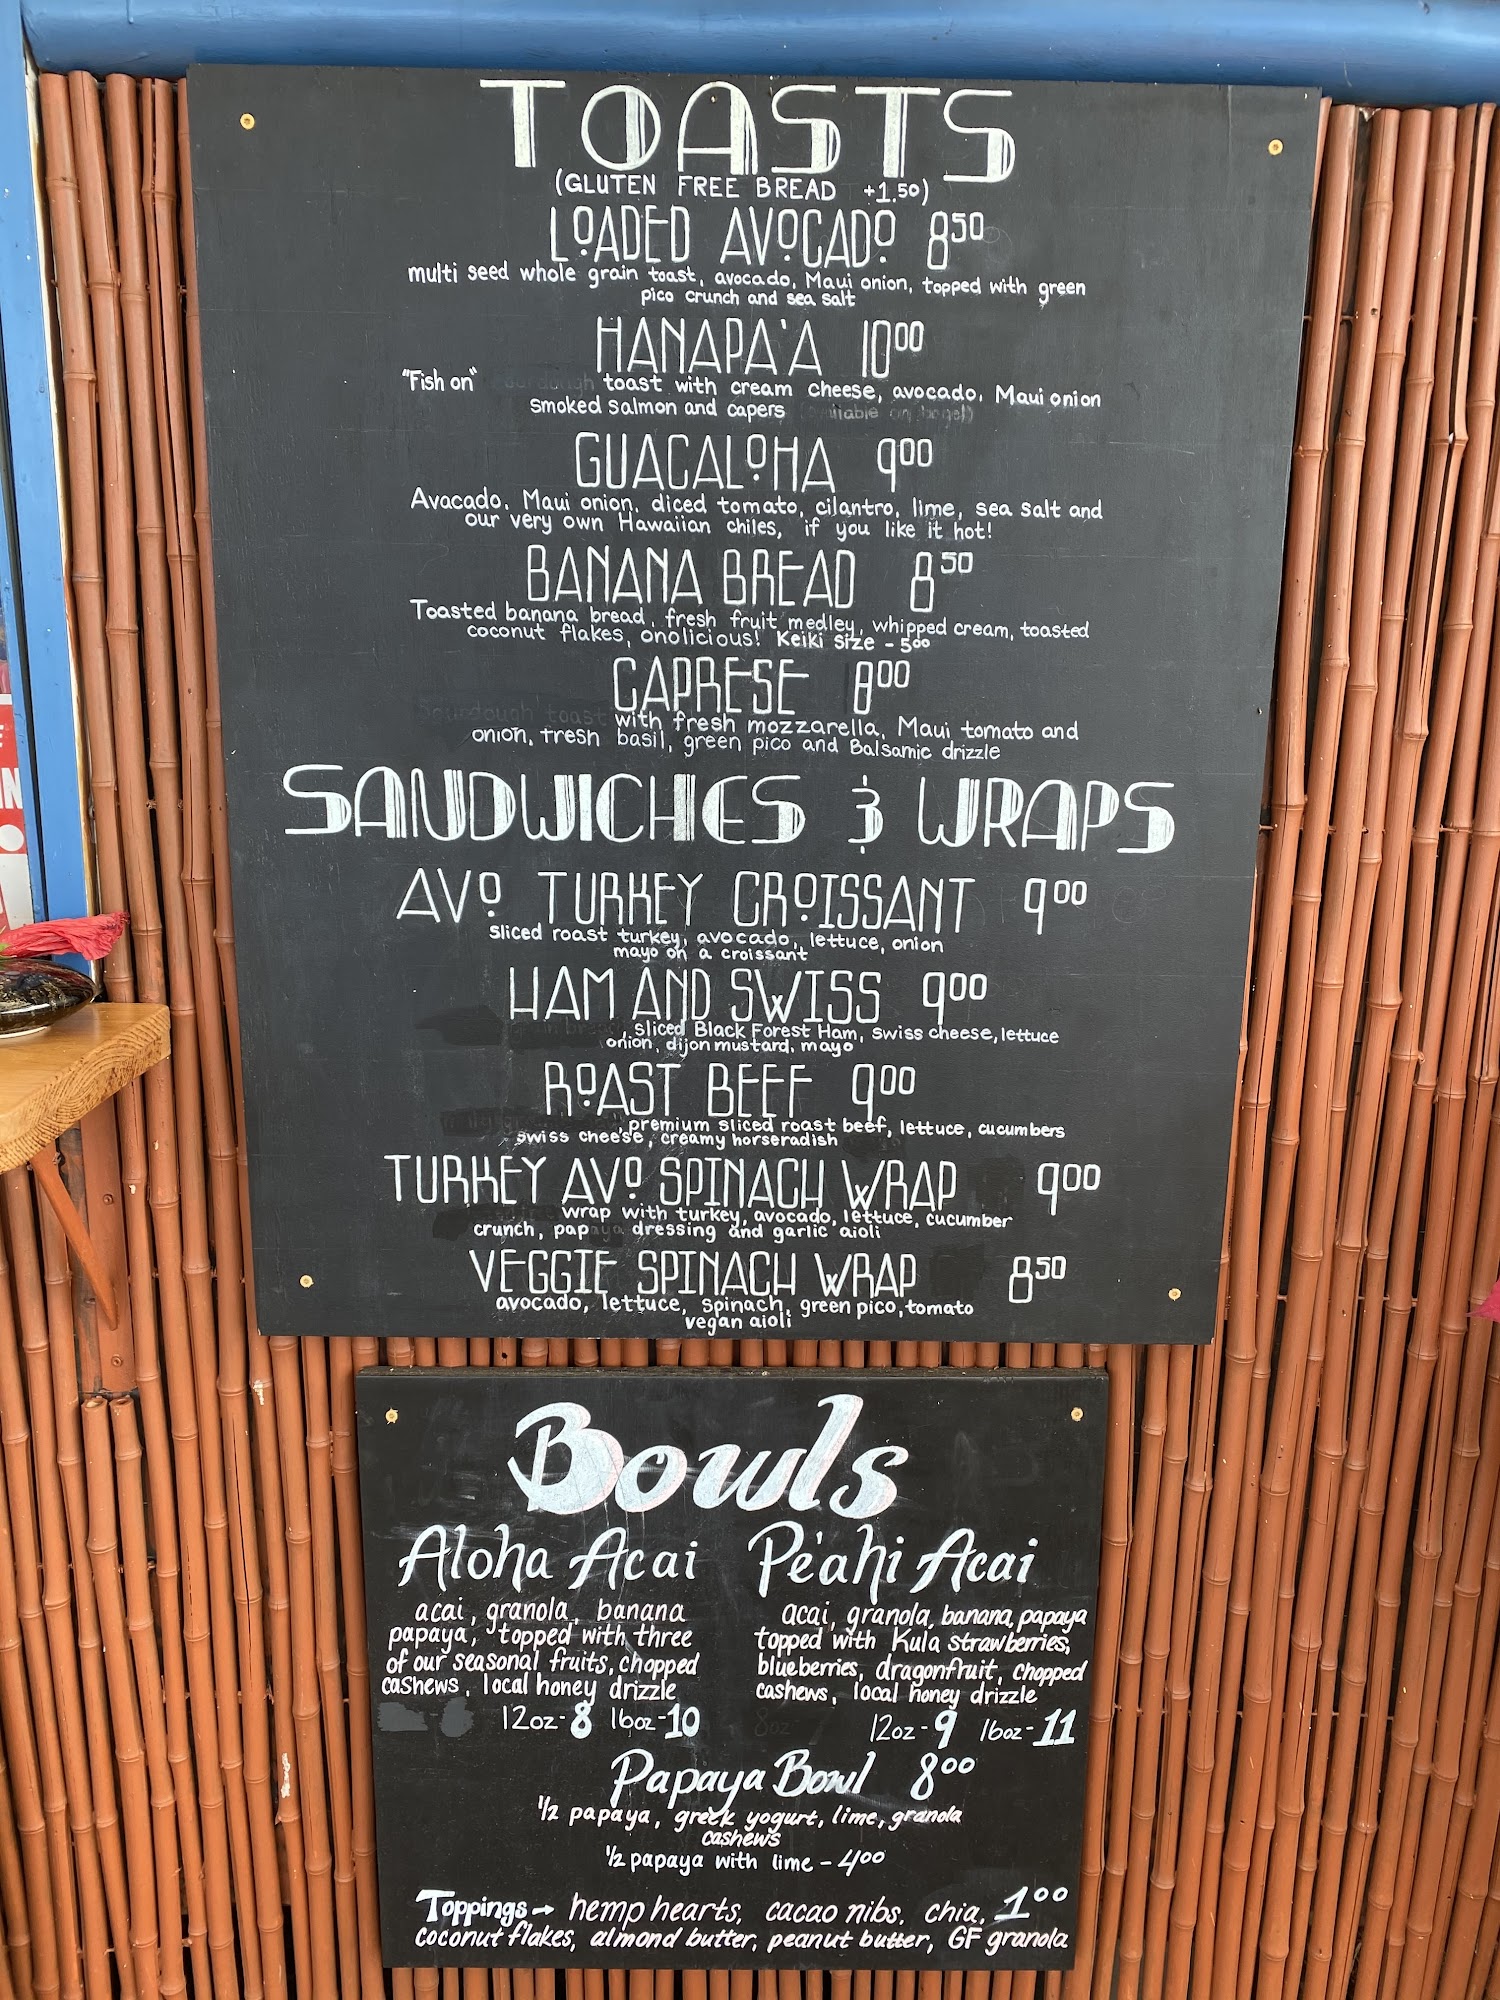 TOASTS
(GLUTEN FREE BREAD +1.50)
LOADED AVOCADO 8.50
multi seed whole grain toast, avocado, Maui onion, topped with green
pico crunch and sea salt
HANAPA'A 10.00
"Fish on" toast with cream cheese, avocado, Maui onion
smoked salmon and capers
GUACALOHA 9.00
Avacado, Maui onion, diced tomato, cilantro, lime, sea salt and
our very own Hawaiian chiles, if you like it hot!
BANANA BREAD 8.50
Toasted banana bread, fresh fruit medley, whipped cream, toasted
coconut flakes, onolicious! Keiki size - 5.00
CAPRESE 8.00
Sourdough toast with fresh mozzarella, Maui tomato and
onion, fresh basil, green pico and Balsamic drizzle
SANDWICHES & WRAPS
AVO TURKEY CROISSANT 9.00
sliced roast turkey, avocado, lettuce, onion
mayo on a croissant
HAM AND SWISS 9.00
, sliced Black Forest Ham, swiss cheese, lettuce
onion, dijon mustard, mayo
ROAST BEEF 9.00
, premium sliced roast beef, lettuce, cucumbers
swiss cheese, creamy horseradish
TURKEY AVO SPINACH WRAP 9.00
wrap with turkey, avocado, lettuce, cucumber
crunch, papaya dressing and garlic aioli
VEGGIE SPINACH WRAP 8.50
avocado, lettuce, spinach, green pico, tomato
vegan aioli
Bowls
Aloha Acai
acai, granola, banana
papaya, topped with three
of our seasonal fruits, chopped
cashews, local honey drizzle
12oz-8 16oz-10
Pe'ahi Acai
acai, granola, banana, papaya
topped with Kula strawberries,
blueberries, dragonfruit, chopped
cashews, local honey drizzle
12oz-9 16oz-11
Papaya Bowl 8.00
1/2 papaya, greek yogurt, lime, granola
cashews
1/2 papaya with lime - 4.00
Toppings → hemp hearts, cacao nibs, chia, 1.00
coconut flakes, almond butter, peanut butter, GF granola